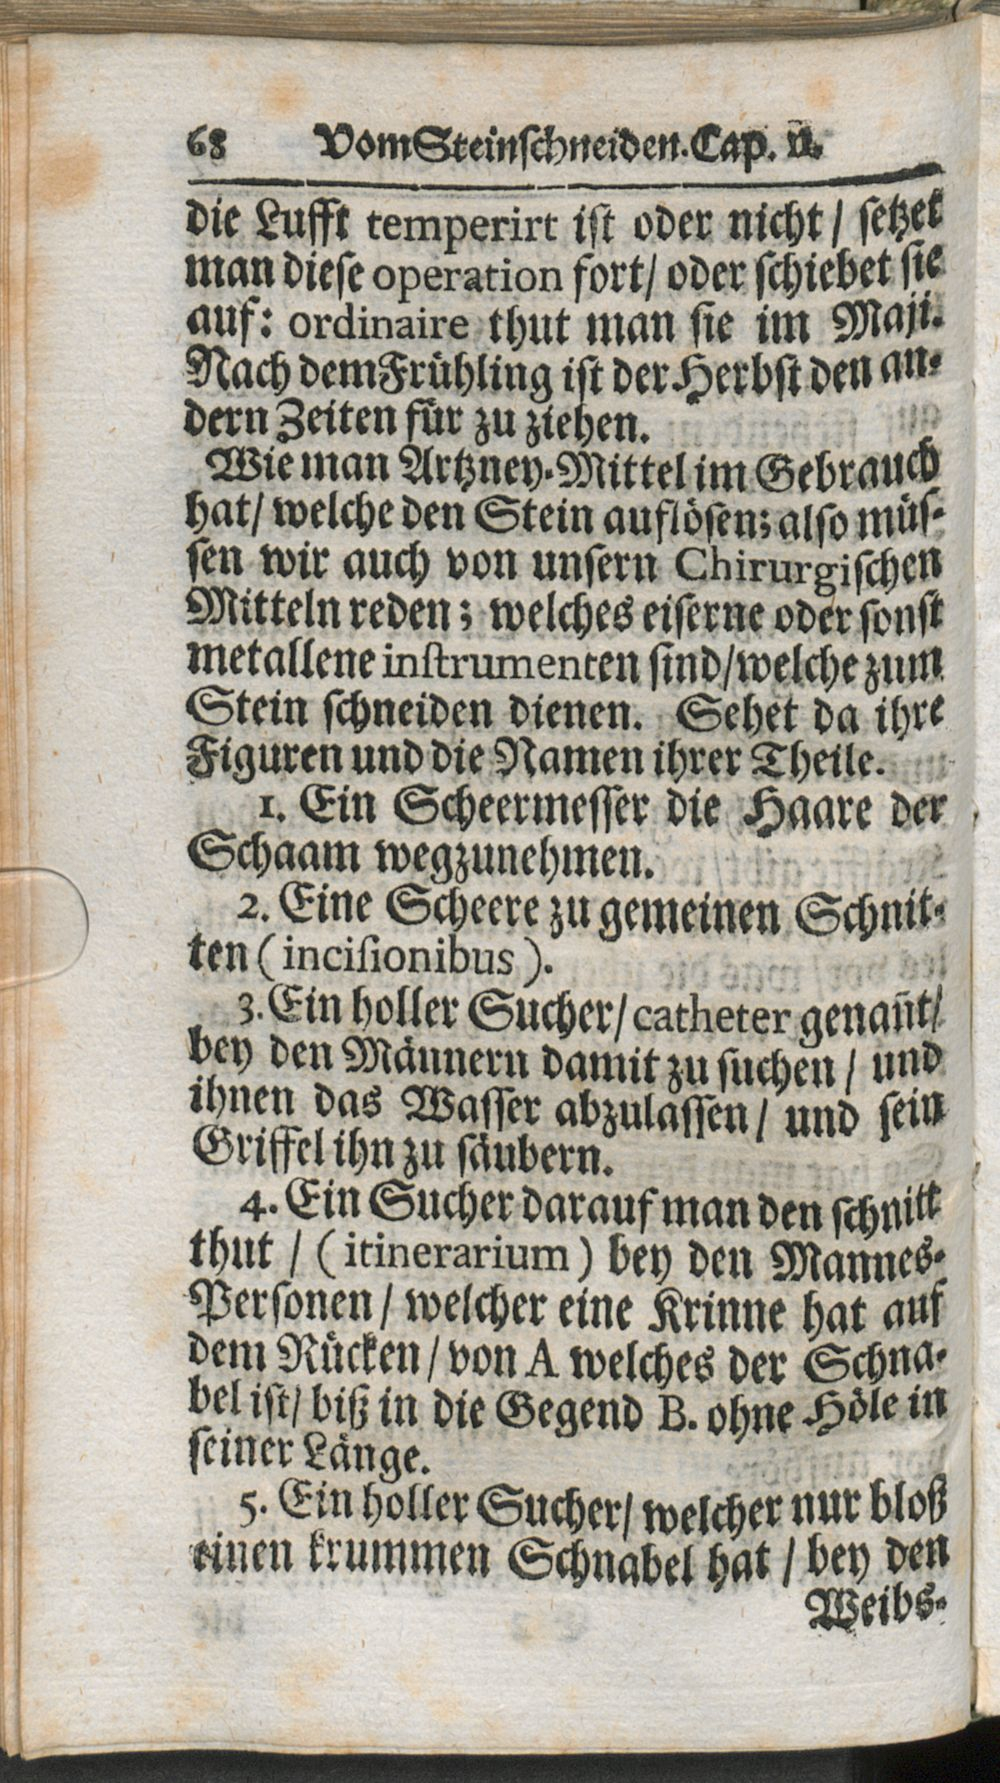 68 Vom Steinschneiden. Cap. II.
die Lufft temperirt ist oder nicht / setzet
man diese operation fort / oder schiebet sie
auf: ordinaire thut man sie im Maji.
Nach dem Frühling ist der Herbst den an-
dern Zeiten für zu ziehen.
Wie man Artzney-Mittel im Gebrauch
hat / welche den Stein auflösen; also müs-
sen wir auch von unsern Chirurgischen
Mitteln reden; welches eiserne oder sonst
metallene instrumenten sind / welche zum
Stein schneiden dienen. Sehet da ihre
Figuren und die Namen ihrer Theile.
1. Ein Scheermesser die Haare der
Schaam wegzunehmen.
2. Eine Scheere zu gemeinen Schnit-
ten (incisionibus).
3. Ein holler Sucher / catheter genañt /
bey den Männern damit zu suchen / und
ihnen das Wasser abzulassen / und sein
Griffel ihn zu säubern.
4. Ein Sucher darauf man den schnitt
thut / (itinerarium) bey den Mannes-
Personen / welcher eine Krinne hat auf
dem Rücken / von A welches der Schna-
bel ist / biß in die Gegend B. ohne Höle in
seiner Länge.
5. Ein holler Sucher / welcher nur bloß
einen krummen Schnabel hat / bey den
Weibs-